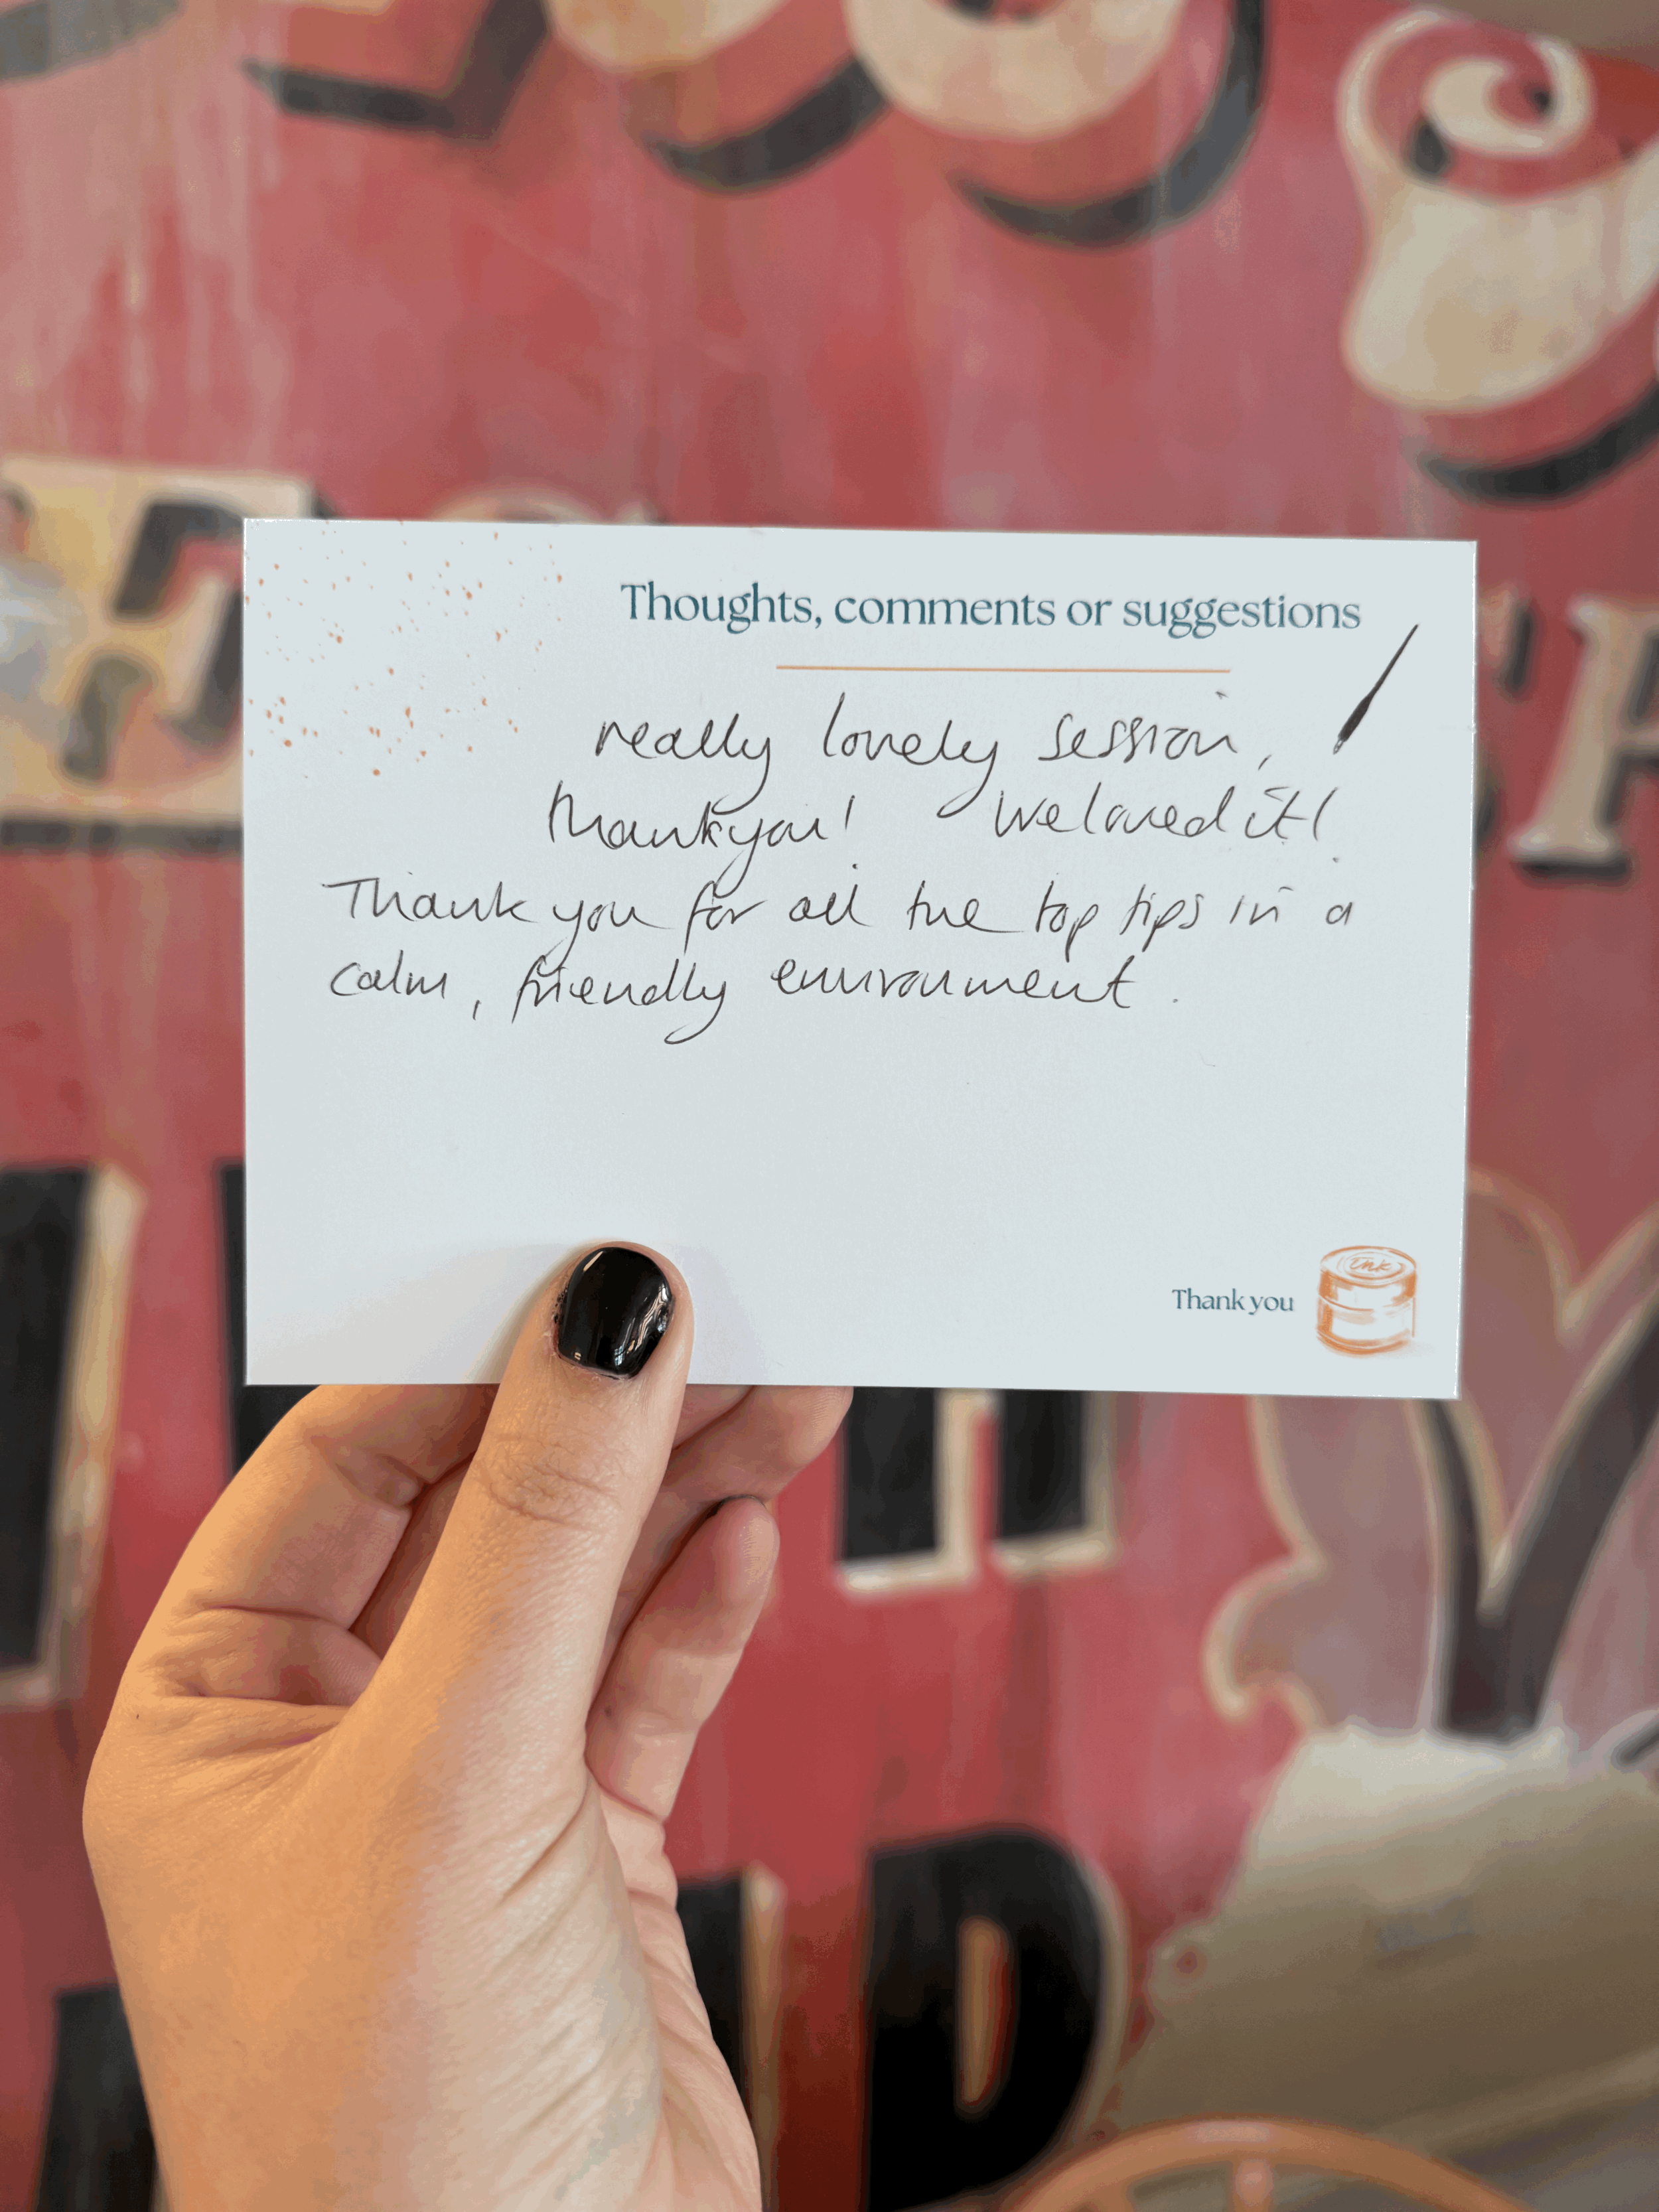 Thoughts, comments or suggestions
really lovely session,
thankyou! We loved it!
Thank you for all the top tips in a
calm, friendly environment.
Thank you
Ink